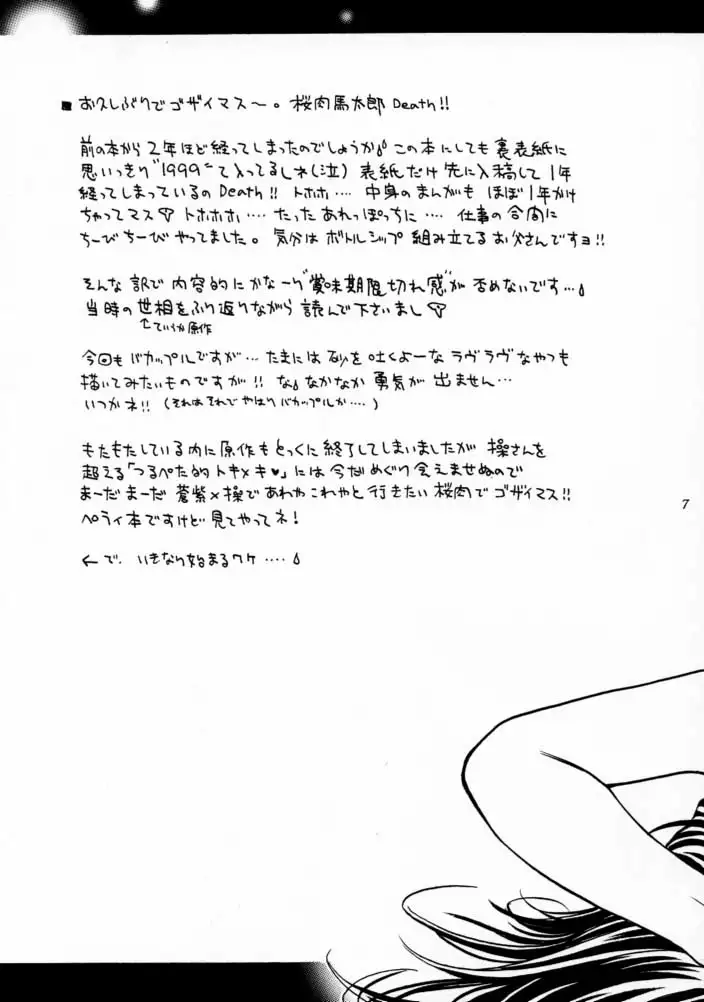 ■お久しぶりでゴザイマス〜。桜肉馬太郎Death!!
前の本から2年ほど経ってしまったのでしょうか この本にしても裏表紙に
思いっきり"1999"て入ってるしネ(泣)表紙だけ先に入稿して1年
経ってしまっているのDeath!! トホホ…. 中身のまんがも ほぼ1年かけ
ちゃってマス トホホホ…. たったあれっぽっちに…. 仕事の合間に
ちーびちーびやってました。気分はボトルシップ組み立てるお父さんですヨ!!
そんな訳で内容的にかなーり"賞味期限切れ感"が否めないです…
当時の世相をふり返りながら読んで下さいまし
ていうか原作
今回もバカップルですが… たまには砂を吐くよーなラヴラヴなやつも
描いてみたいものですが!! な、なかなか勇気が出ません…
いつかネ!!(それはそれでやはりバカップルか….)
もたもたしている内に原作もとっくに終了してしまいましたが 操さんを
超える「つるぺた的トキメキ♥」には今だめぐり会えませぬので
まーだまーだ 蒼紫×操であれやこれやと行きたい桜肉でゴザイマス!!
ペライ本ですけど見てやってネ!
←で、いきなり始まるワケ….
7